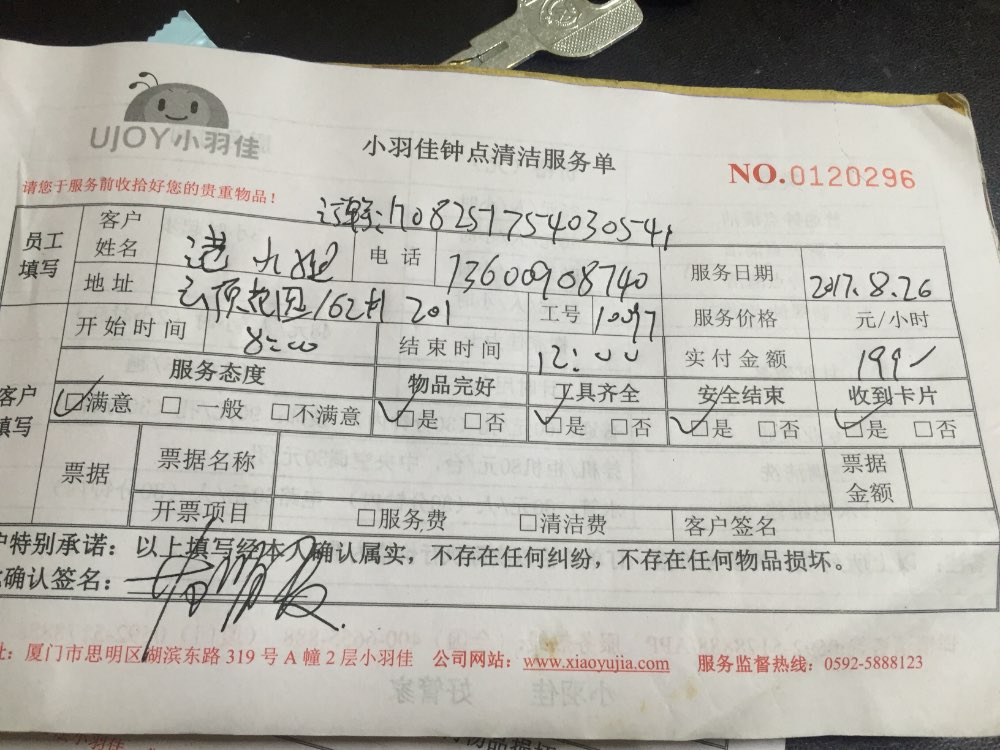 UJOY小羽佳
小羽佳钟点清洁服务单
NO.0120296
请您于服务前收拾好您的贵重物品！
17082517754030541
员工填写 客户姓名 电话 13600908740 服务日期 2017.8.26
地址 162 201 工号 10097 服务价格 元/小时
开始时间 8:00 结束时间 12:00 实付金额 199
客户填写 服务态度 物品完好 工具齐全 安全结束 收到卡片
☑满意 □一般 □不满意 ☑是 □否 ☑是 □否 ☑是 □否 ☑是 □否
票据 票据名称 票据金额
开票项目 □服务费 □清洁费 客户签名
户特别承诺：以上填写经本人确认属实，不存在任何纠纷，不存在任何物品损坏。
确认签名：
址：厦门市思明区湖滨东路 319 号 A 幢 2 层小羽佳 公司网站：www.xiaoyujia.com 服务监督热线：0592-5888123